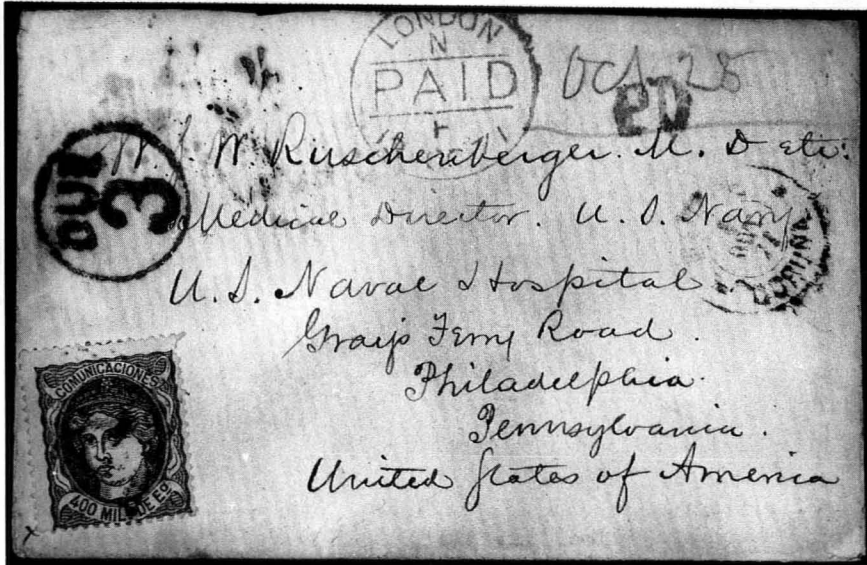 LONDON
N
PAID
Oct 25
PD
DUE
3
W. S. W. Ruschenberger. M. D etc:
Medical Director. U. S. Navy
U. S. Naval Hospital
Gray's Ferry Road.
Philadelphia.
Pennsylvania.
United States of America
CORUÑA
COMUNICACIONES
400 MILS DE Eº
x